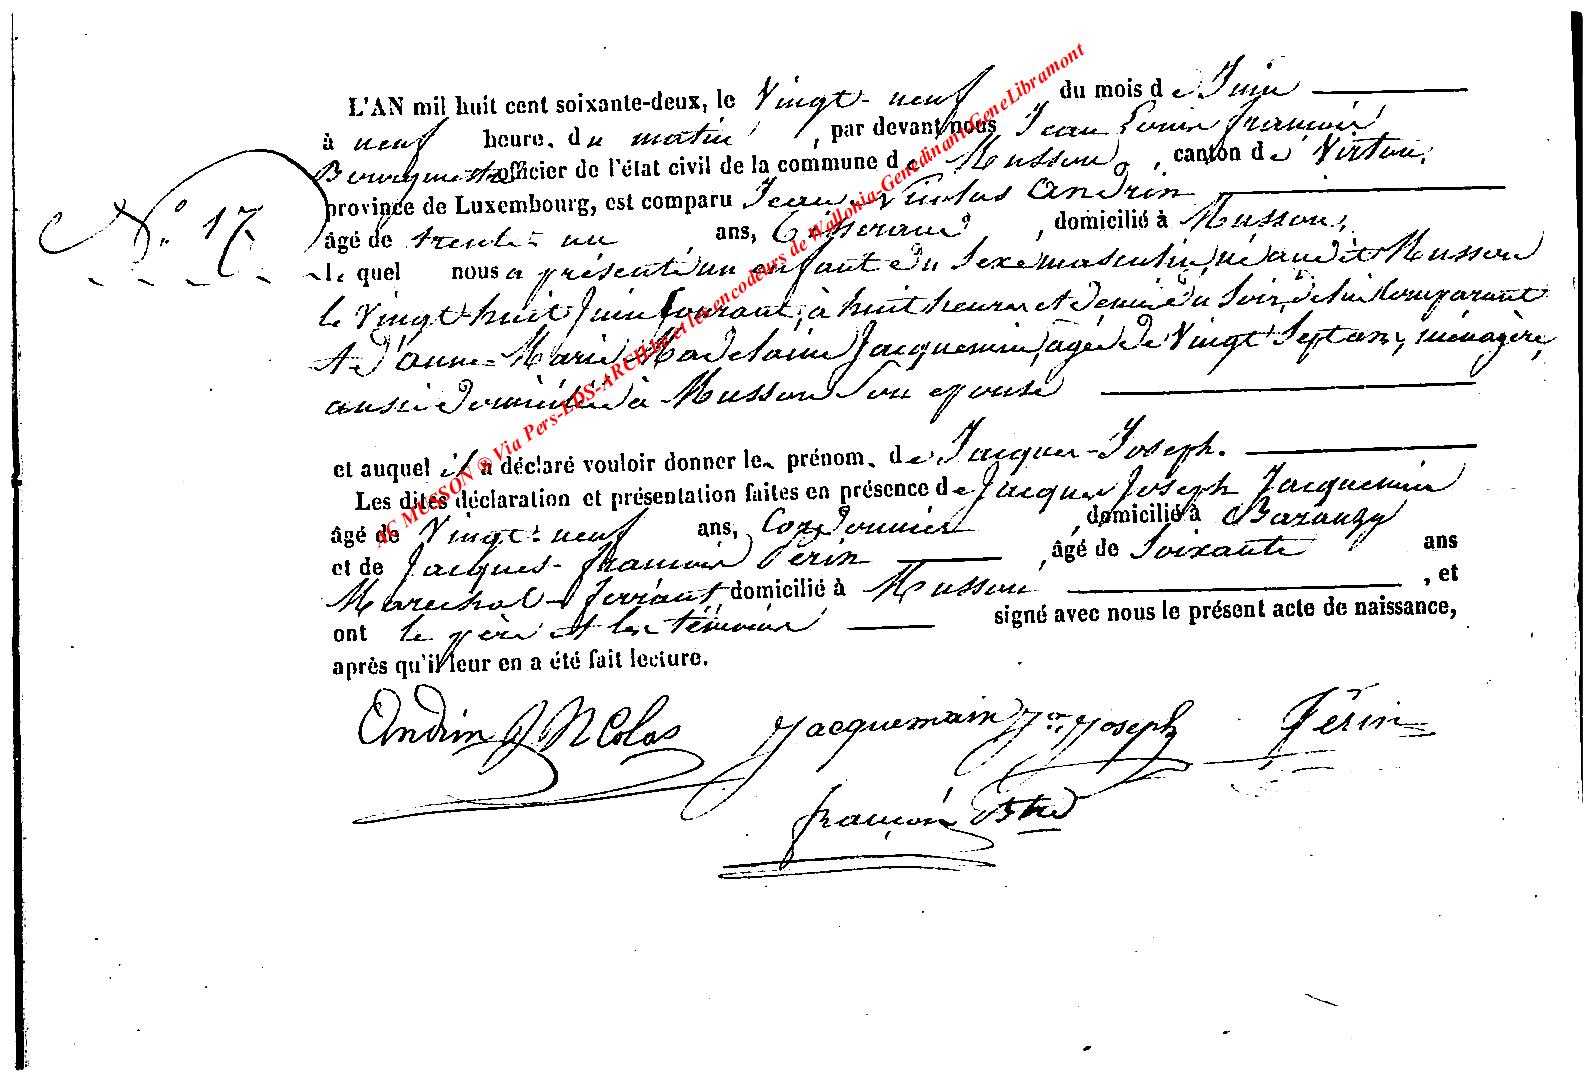 L'AN mil huit cent soixante-deux, le Vingt-neuf du mois de Juin
à neuf heure. du matin, par devant nous Jean Louis françois
officier de l'état civil de la commune de Musson, canton de Virton,
province de Luxembourg, est comparu Jean Nicolas Andrin
N.° 17
âgé de trente-un ans, domicilié à Musson,
le quel nous a présenté un enfant du Sexe masculin, né audit Musson
le Vingt huit Juin Courant, à huit heures et demie du Soir, de lui Comparant
et d'anne-Marie Madelaine Jacquemin, agée de Vingt Sept ans, ménagère,
aussi domiciliée à Musson Son epouse
et auquel il a déclaré vouloir donner les prénom. de Jacques-Joseph.
Les dites déclaration et présentation faites en présence de Jacques Joseph Jacquemin
âgé de Vingt-neuf ans, Cordonnier, domicilié à Baranzy
et de Jacques-françois Périn, âgé de Soixante ans
Marechal-ferrant, domicilié à Musson, et
ont le père et les témoins signé avec nous le présent acte de naissance,
après qu'il leur en a été fait lecture.
Andrin J Nicolas Jacquemain Jes Joseph Périn
françois
AC MUSSON ® Via Pers-LDS-ARCH.be et les encodeurs de Wallonia-Genedinant-GeneLibramont